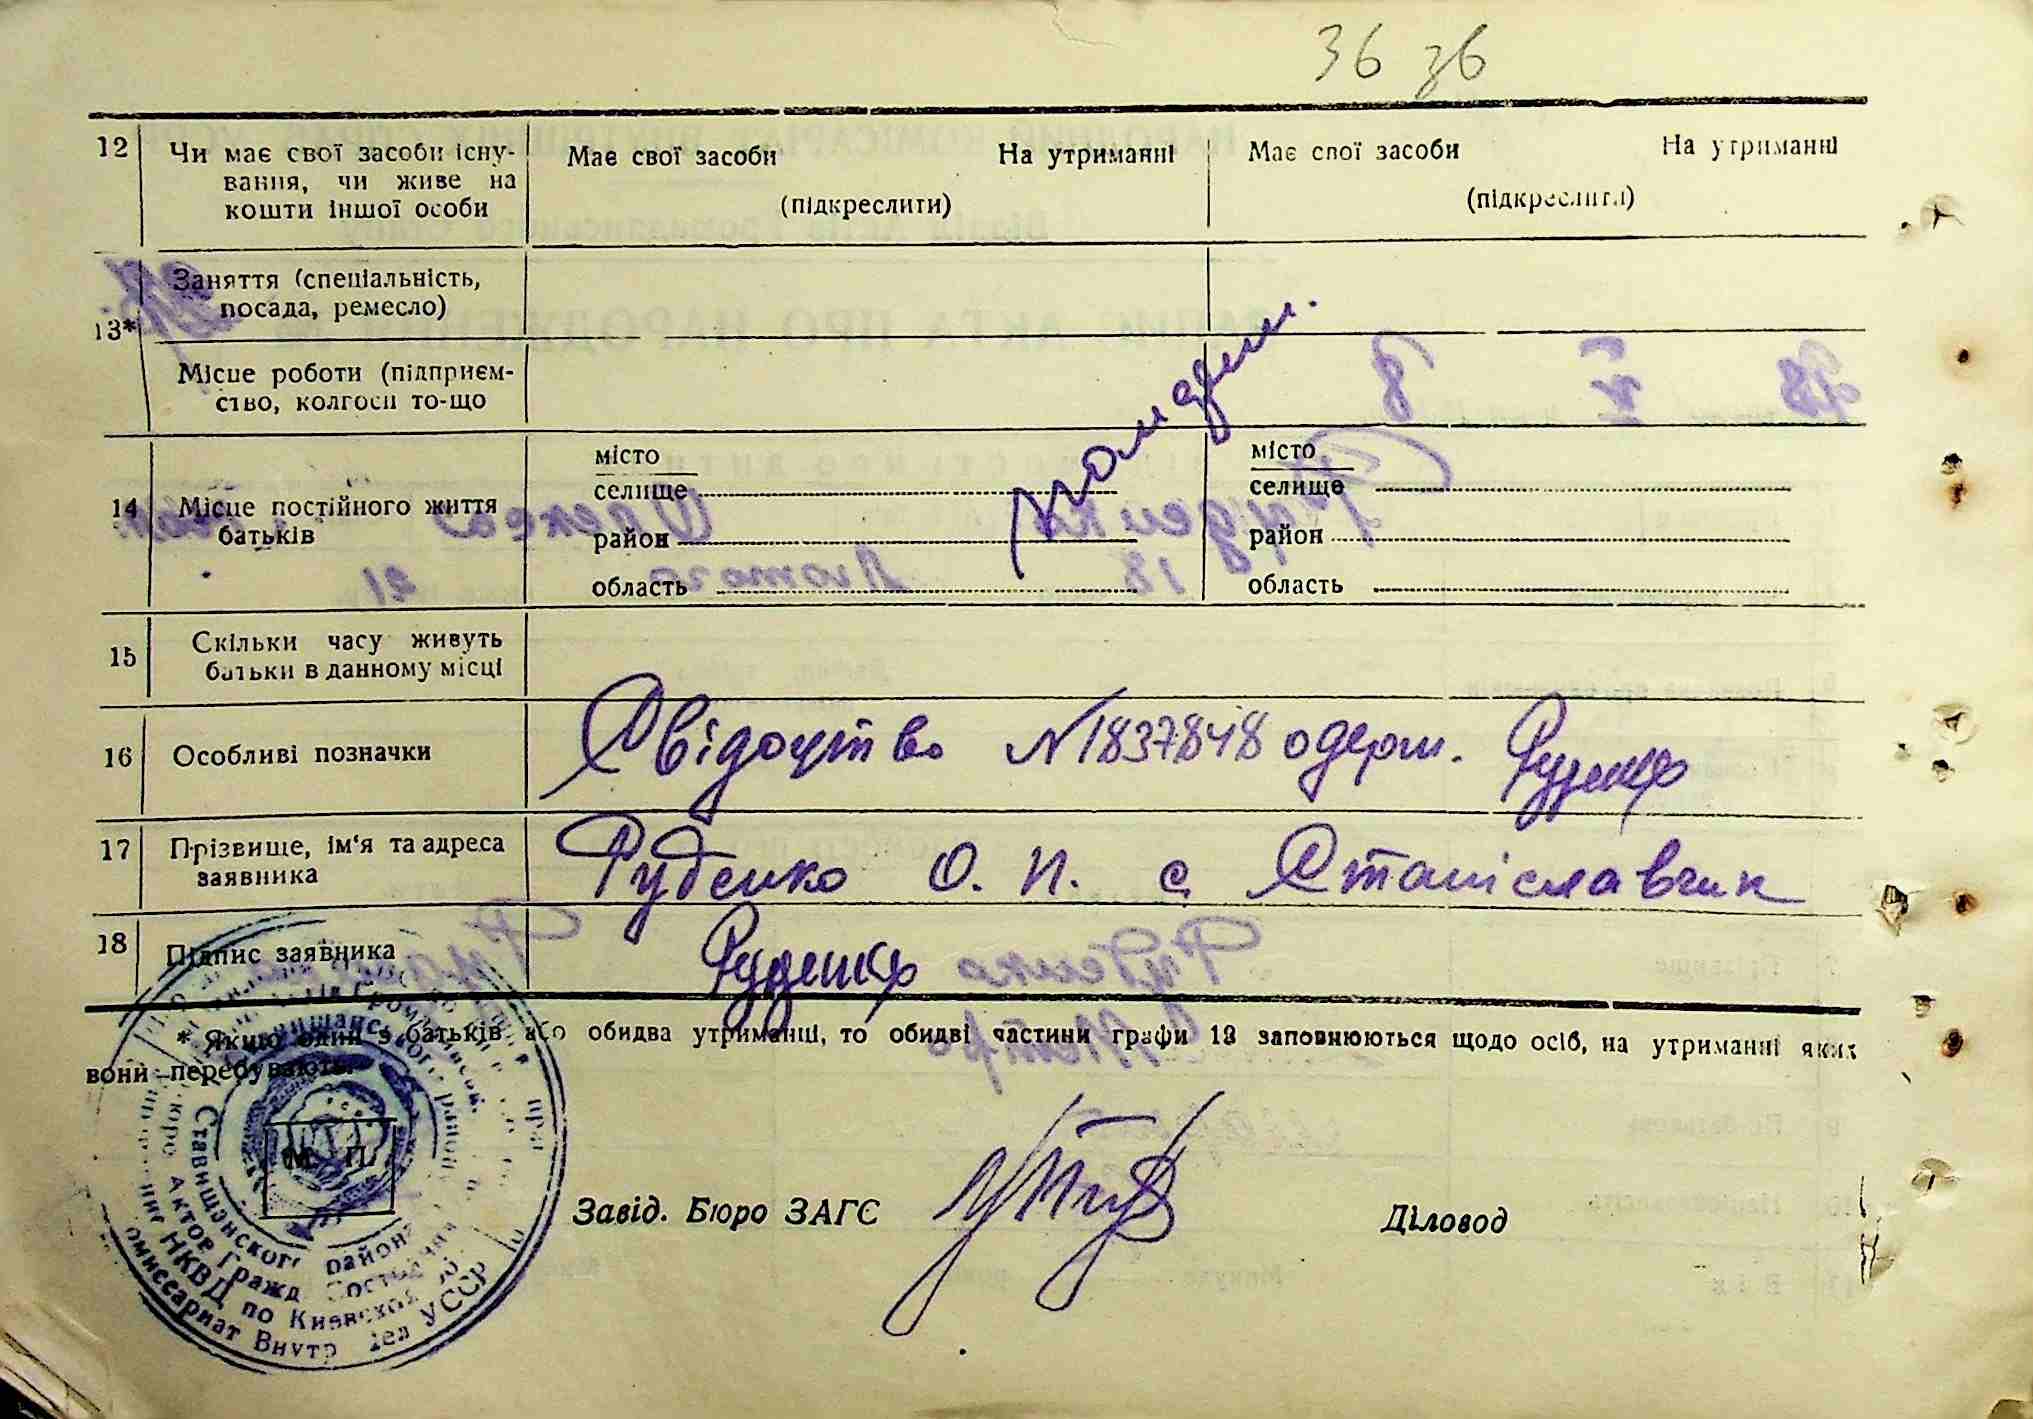 36 зб
12 Чи має свої засоби існу- Має свої засоби На утриманні Має свої засоби На утриманні
вання, чи живе на (підкреслити) (підкреслити)
кошти іншої особи
13* Заняття (спеціальність,
посада, ремесло)
Місце роботи (підприєм-
ство, колгосп то-що
14 Місце постійного життя
батьків
місто місто
селище селище
район район
область область
15 Скільки часу живуть
батьки в данному місці
16 Особливі позначки Свідоцтво №1837848 одерж. Руденко
17 Прізвище, ім'я та адреса
заявника
Руденко О. П. с Станіславчик
18 Підпис заявника Руденко
* Якщо один з батьків або обидва утриманні, то обидві частини графи 13 заповнюються щодо осіб, на утриманні яких
вони перебувають.
М. П.
Завід. Бюро ЗАГС Діловод
Ставищанского района
Актов Гражд. Состояния
НКВД по Киевской об.
омиссариат Внутр дел УССР